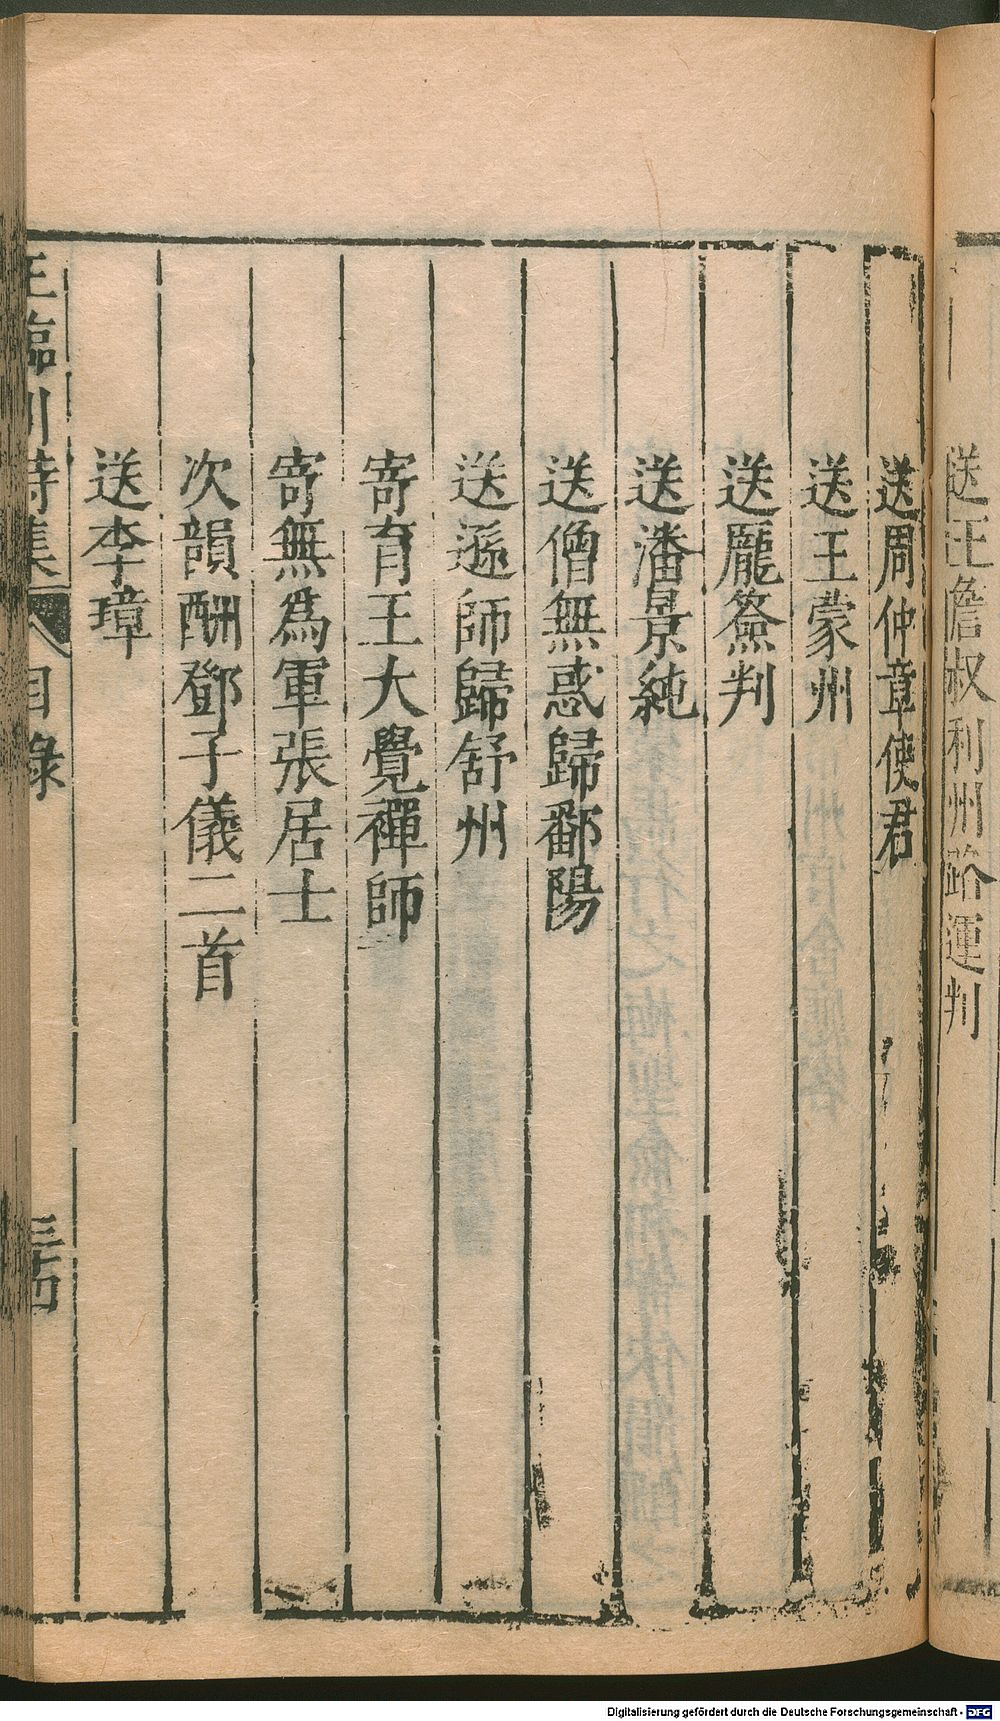 送王詹叔利州路運判
送周仲章使君
送王蒙州
送龐簽判
送潘景純
送僧無惑歸鄱陽
送遜師歸舒州
寄育王大覺禪師
寄無為軍張居士
次韻酬鄧子儀二首
送李璋
王臨川詩集 目錄 三十四
Digitalisierung gefördert durch die Deutsche Forschungsgemeinschaft - DFG